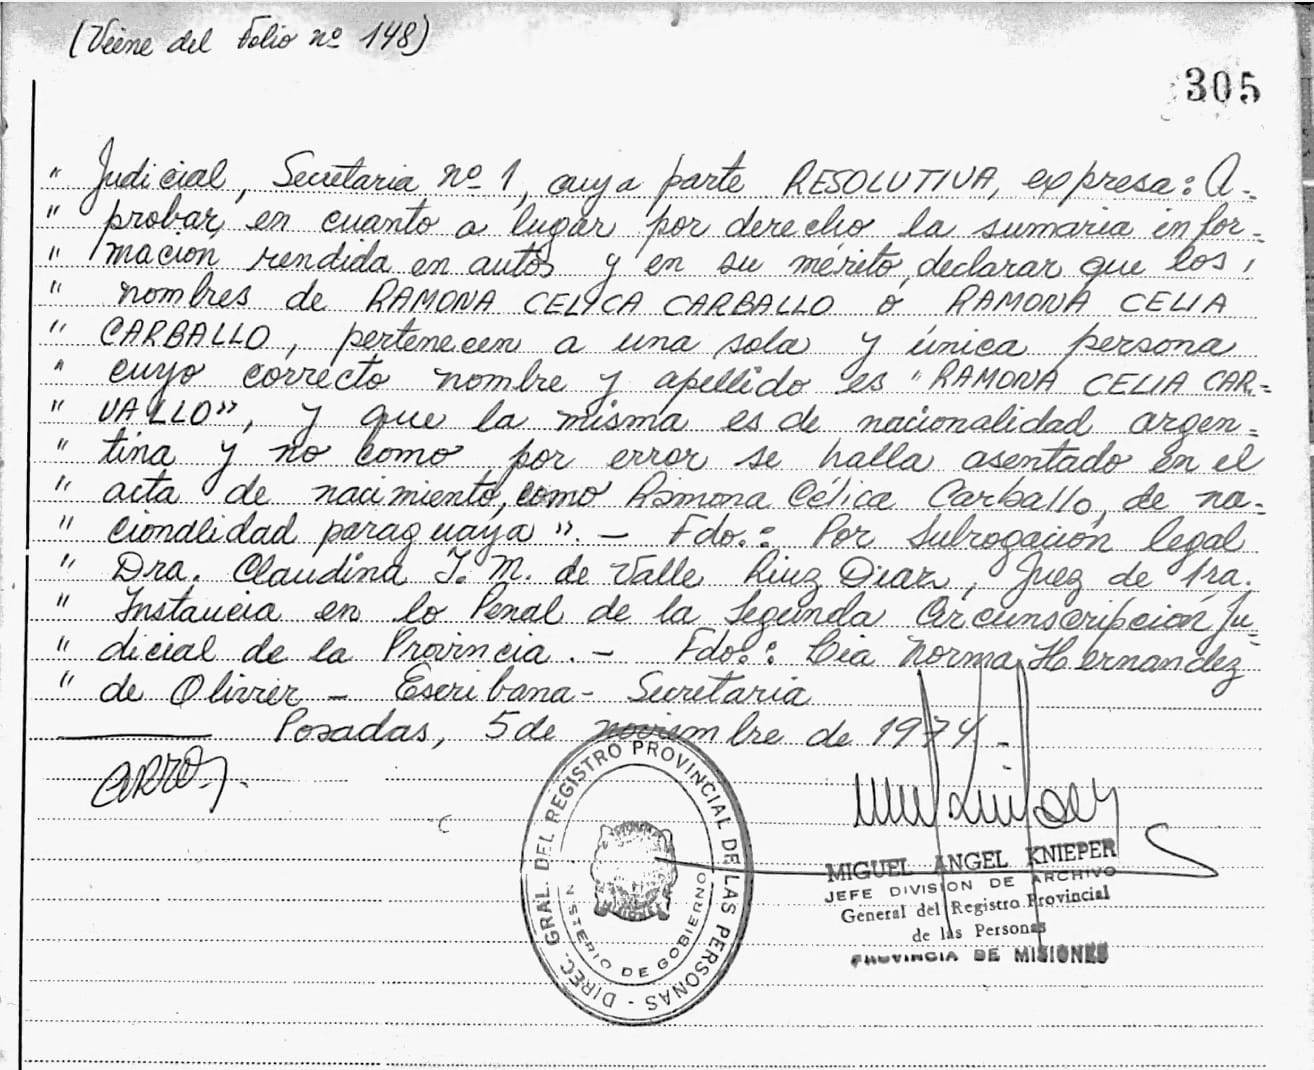 (Viene del Folio nº 148)
305
" Judicial, Secretaria nº 1, cuya parte RESOLUTIVA, expresa: A-
" probar, en cuanto a lugar por derecho la sumaria infor=
" mación rendida en autos y en su mérito, declarar que los
" nombres de RAMONA CELICA CARBALLO ó RAMONA CELIA
" CARBALLO, pertenecen a una sola y única persona
" cuyo correcto nombre y apellido es "RAMONA CELIA CAR=
" VALLO", y que la misma es de nacionalidad argen=
" tina y no como, por error se halla asentado en el
" acta de nacimiento, como Ramona Célica Carballo, de na=
" cionalidad paraguaya". — Fdo.: Por Subrogación legal
" Dra. Claudina T. M. de Valle Ruiz Diaz, Juez de 1ra.
" Instancia en lo Penal de la Segunda Circunscripción Ju=
" dicial de la Provincia. — Fdo.: Norma Hernandez
" de Olivier — Escribana - Secretaria
Posadas, 5 de noviembre de 1974 -
DIREC. GRAL. DEL REGISTRO PROVINCIAL DE LAS PERSONAS -
ISTERIO DE GOBIERNO
MIGUEL ANGEL KNIEPER
JEFE DIVISION DE ARCHIVO
General del Registro Provincial
de las Personas
PROVINCIA DE MISIONES